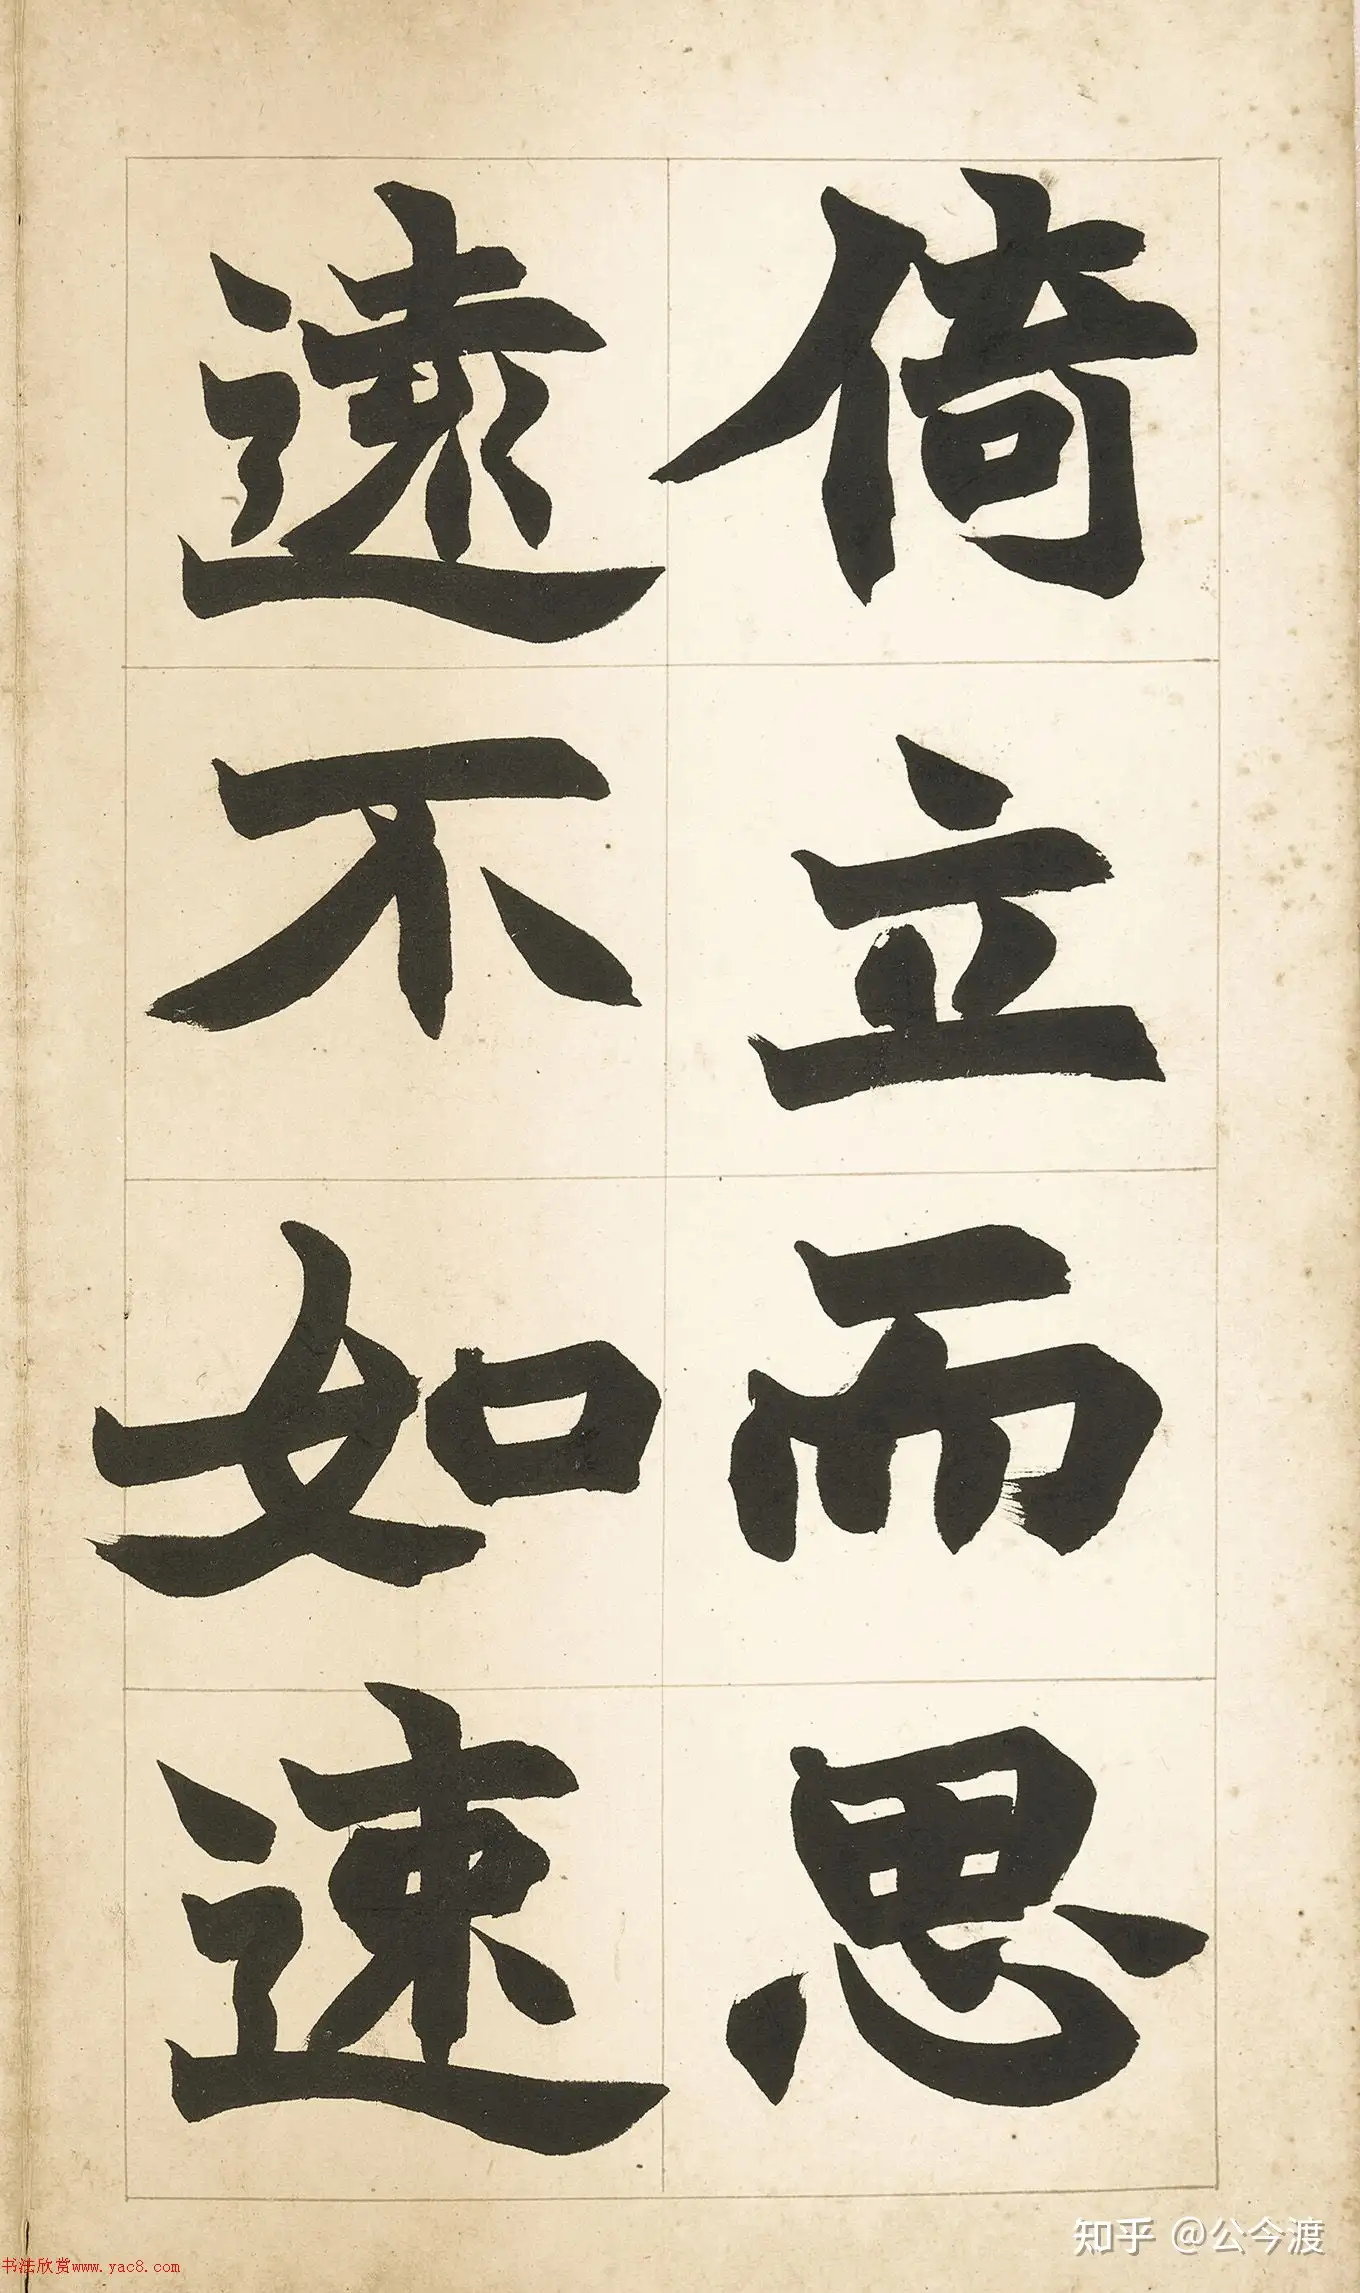 倚立而思
遠不如速
知乎 @公今渡
书法欣赏www.yac8.com